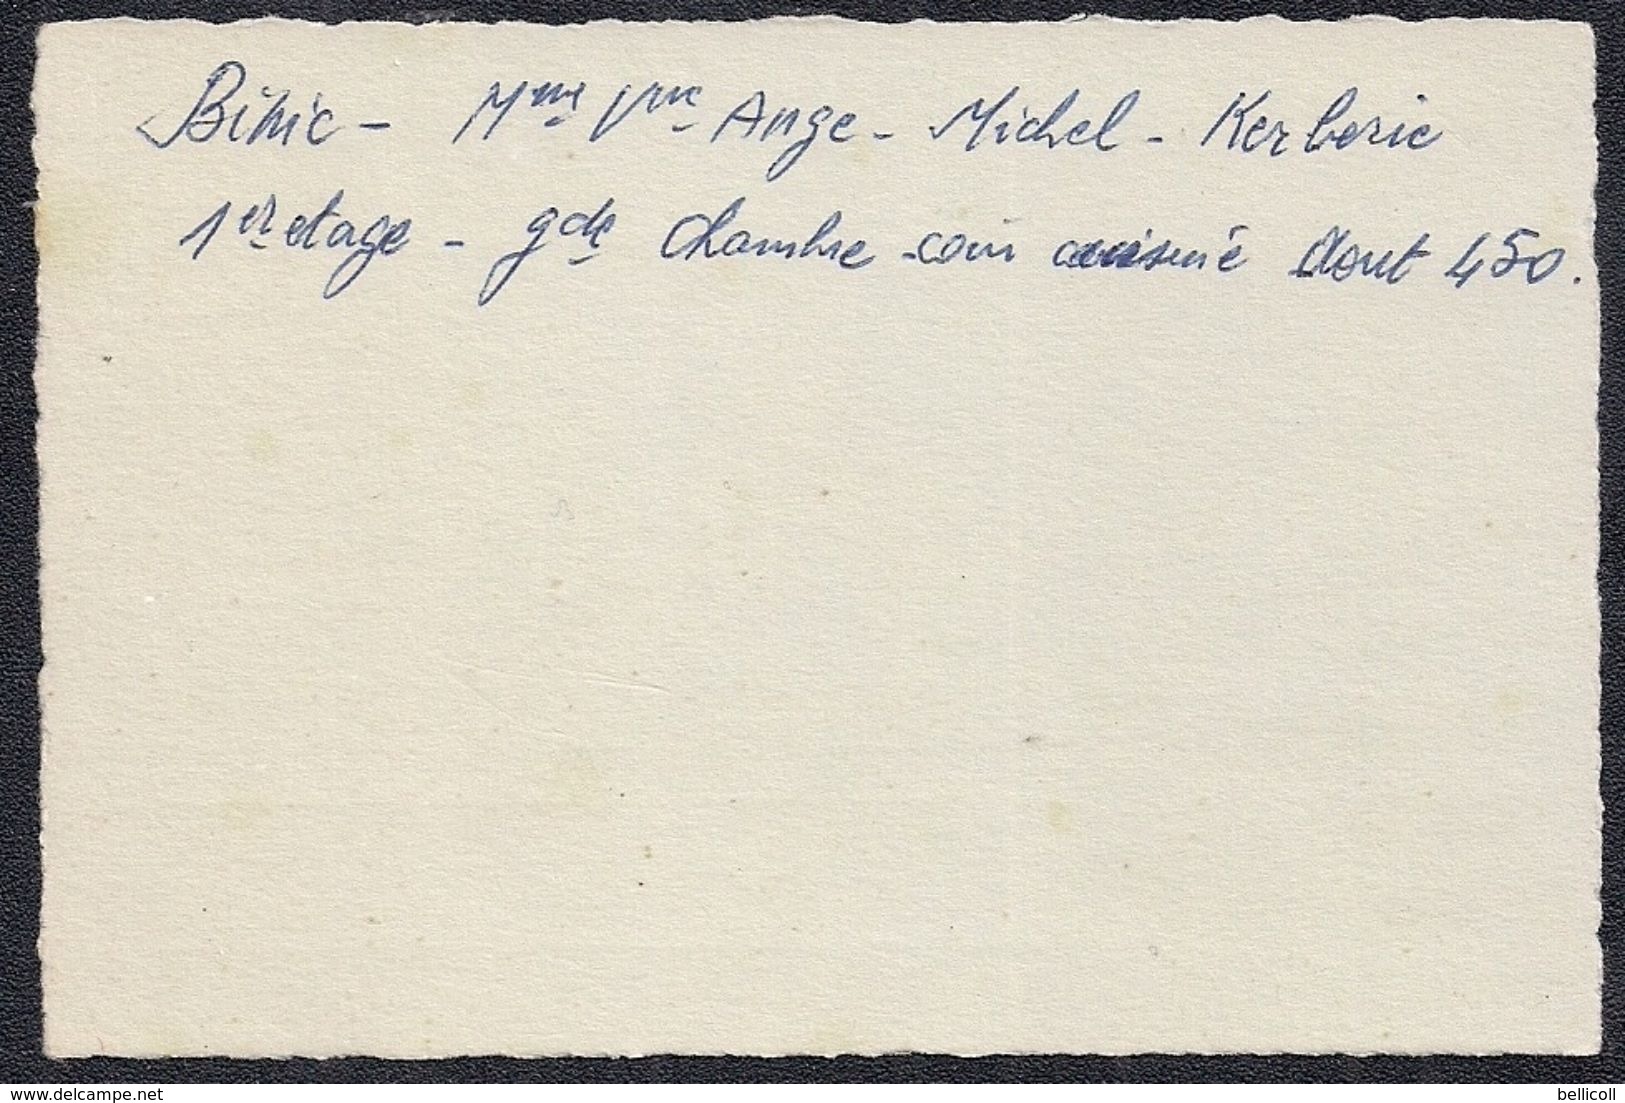 Binic - Mme Vve Ange - Michel - Kerberic
1er etage - gde chambre - coin cuisine Aout 450.
bellicoll